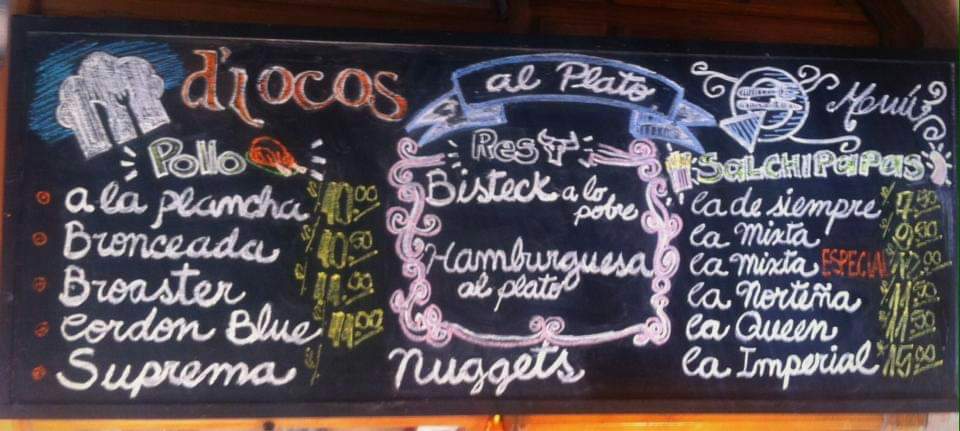 d'locos
Pollo
a la plancha S/ 10.00
Bronceada S/ 10.50
Broaster S/ 11.00
Cordon Blue 11.00
Suprema S/
al Plato
Res
Bisteck a lo
pobre
Hamburguesa
al plato
Nuggets
Menú
SALCHIPAPAS
la de siempre 7.50
la Mixta 9.50
la Mixta ESPECIAL 12.00
la Norteña 11.50
la Queen 11.50
la Imperial 15.00